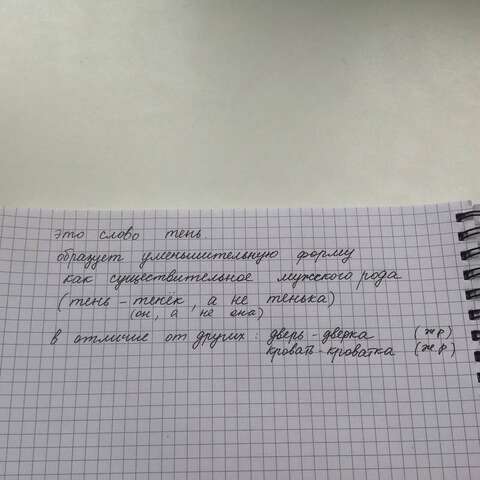 это слово тень.
образует уменьшительную форму
как существительное мужского рода
(тень - тенек, а не тенька)
(он, а не она)
в отличие от других: дверь - дверка (ж.р)
кровать - кроватка (ж.р)